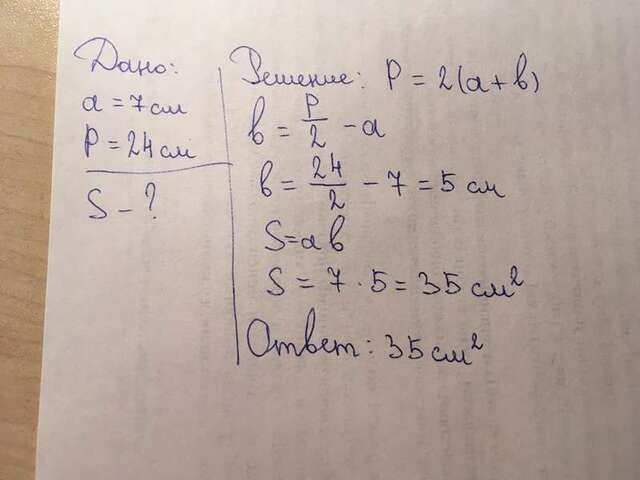 Дано:
a = 7см
P = 24см
S - ?
Решение: P = 2(a + b)
b = P/2 - a
b = 24/2 - 7 = 5 см
S = a b
S = 7 · 5 = 35 см²
Ответ: 35 см²